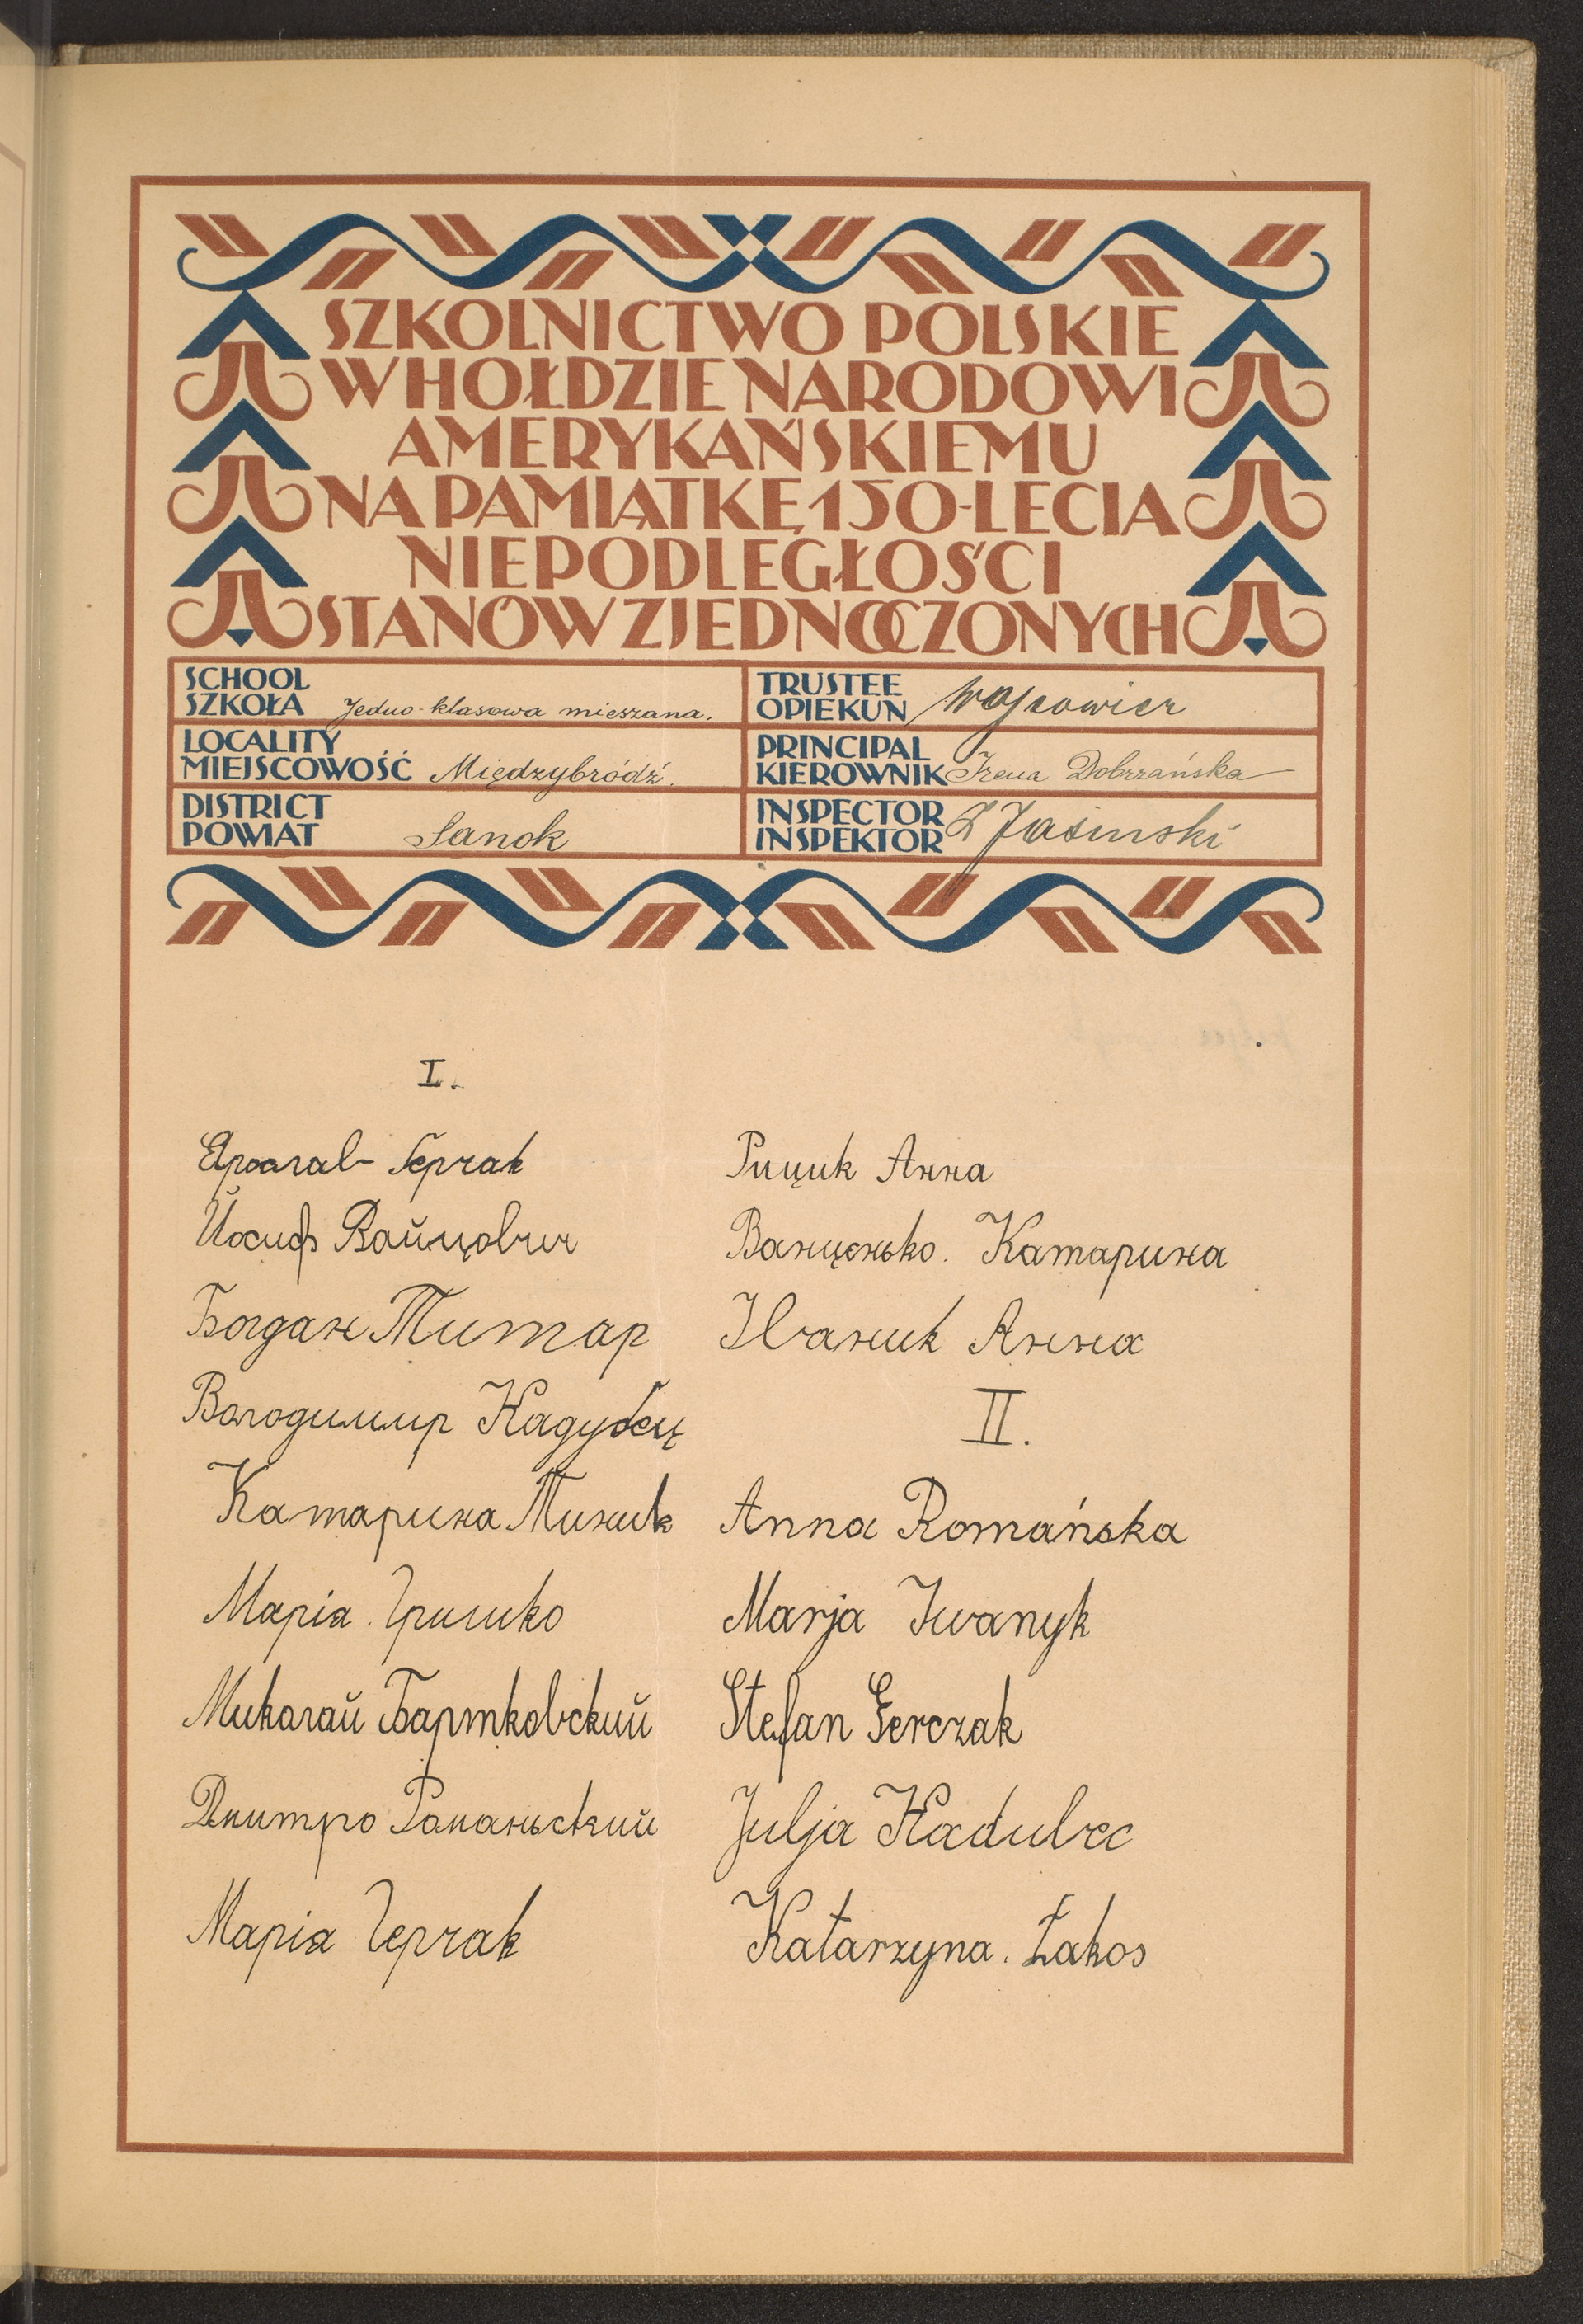 SZKOLNICTWO POLSKIE
W HOŁDZIE NARODOWI
AMERYKAŃSKIEMU
NA PAMIĄTKĘ 150-LECIA
NIEPODLEGŁOŚCI
STANÓW ZJEDNOCZONYCH
SCHOOL
SZKOŁA Jedno-klasowa mieszana.
LOCALITY
MIEJSCOWOŚĆ Międzybródź.
DISTRICT
POWIAT Sanok
TRUSTEE
OPIEKUN Wojcowicz
PRINCIPAL
KIEROWNIK Irena Dobrzańska
INSPECTOR
INSPEKTOR Jasinski
I.
Ґерчак
Йосиф Вайцович
Богдан Титар
Володимир Кадубец
Катарина Тиник
Марія Грицико
Миколай Бартковский
Дмитро Романьский
Марія Герчак
Рицик Анна
Ванценько. Катарина
Іваник Анна
II.
Anna Romańska
Marja Iwanyk
Stefan Gerczak
Julja Kadubec
Katarzyna. Łakos